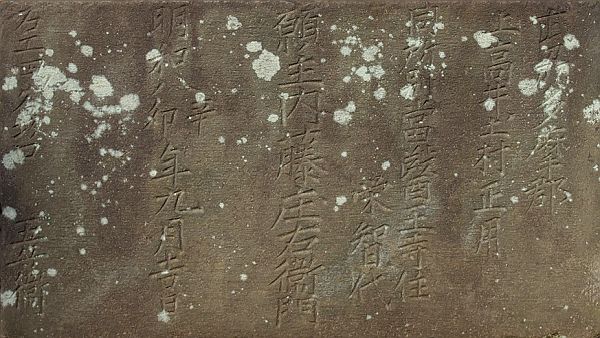 武州多摩郡
上高井土村正用
同所別當醫王寺住
榮智代
願主内藤庄右衛門
明和八辛卯年九月吉日